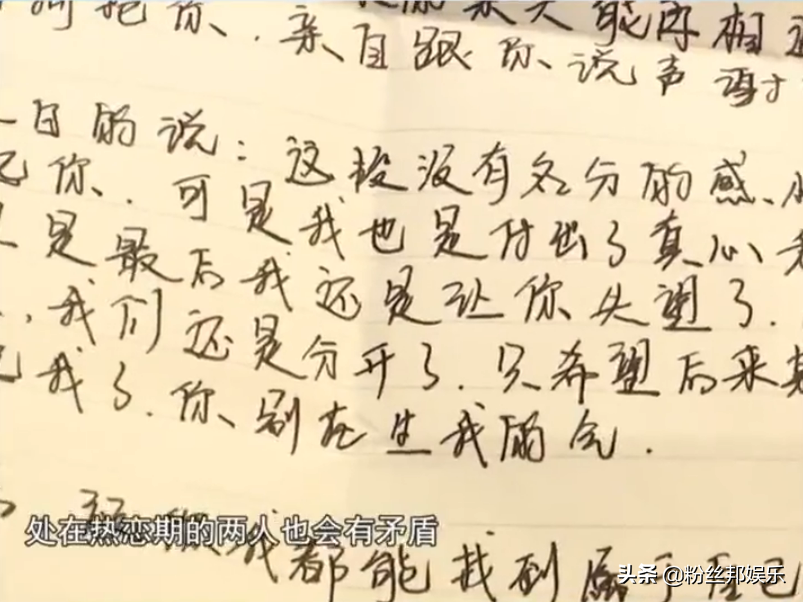 你.亲自跟你说声谢
白的说:这段没有名分的感
你.可是我也是付出了真心
是最后我还是让你失望了.
,我们还是分开了.只希望后来
我了.你别在生我的气.
处在热恋期的两人也会有矛盾
我都能找到属于自己
头条 @粉丝邦娱乐